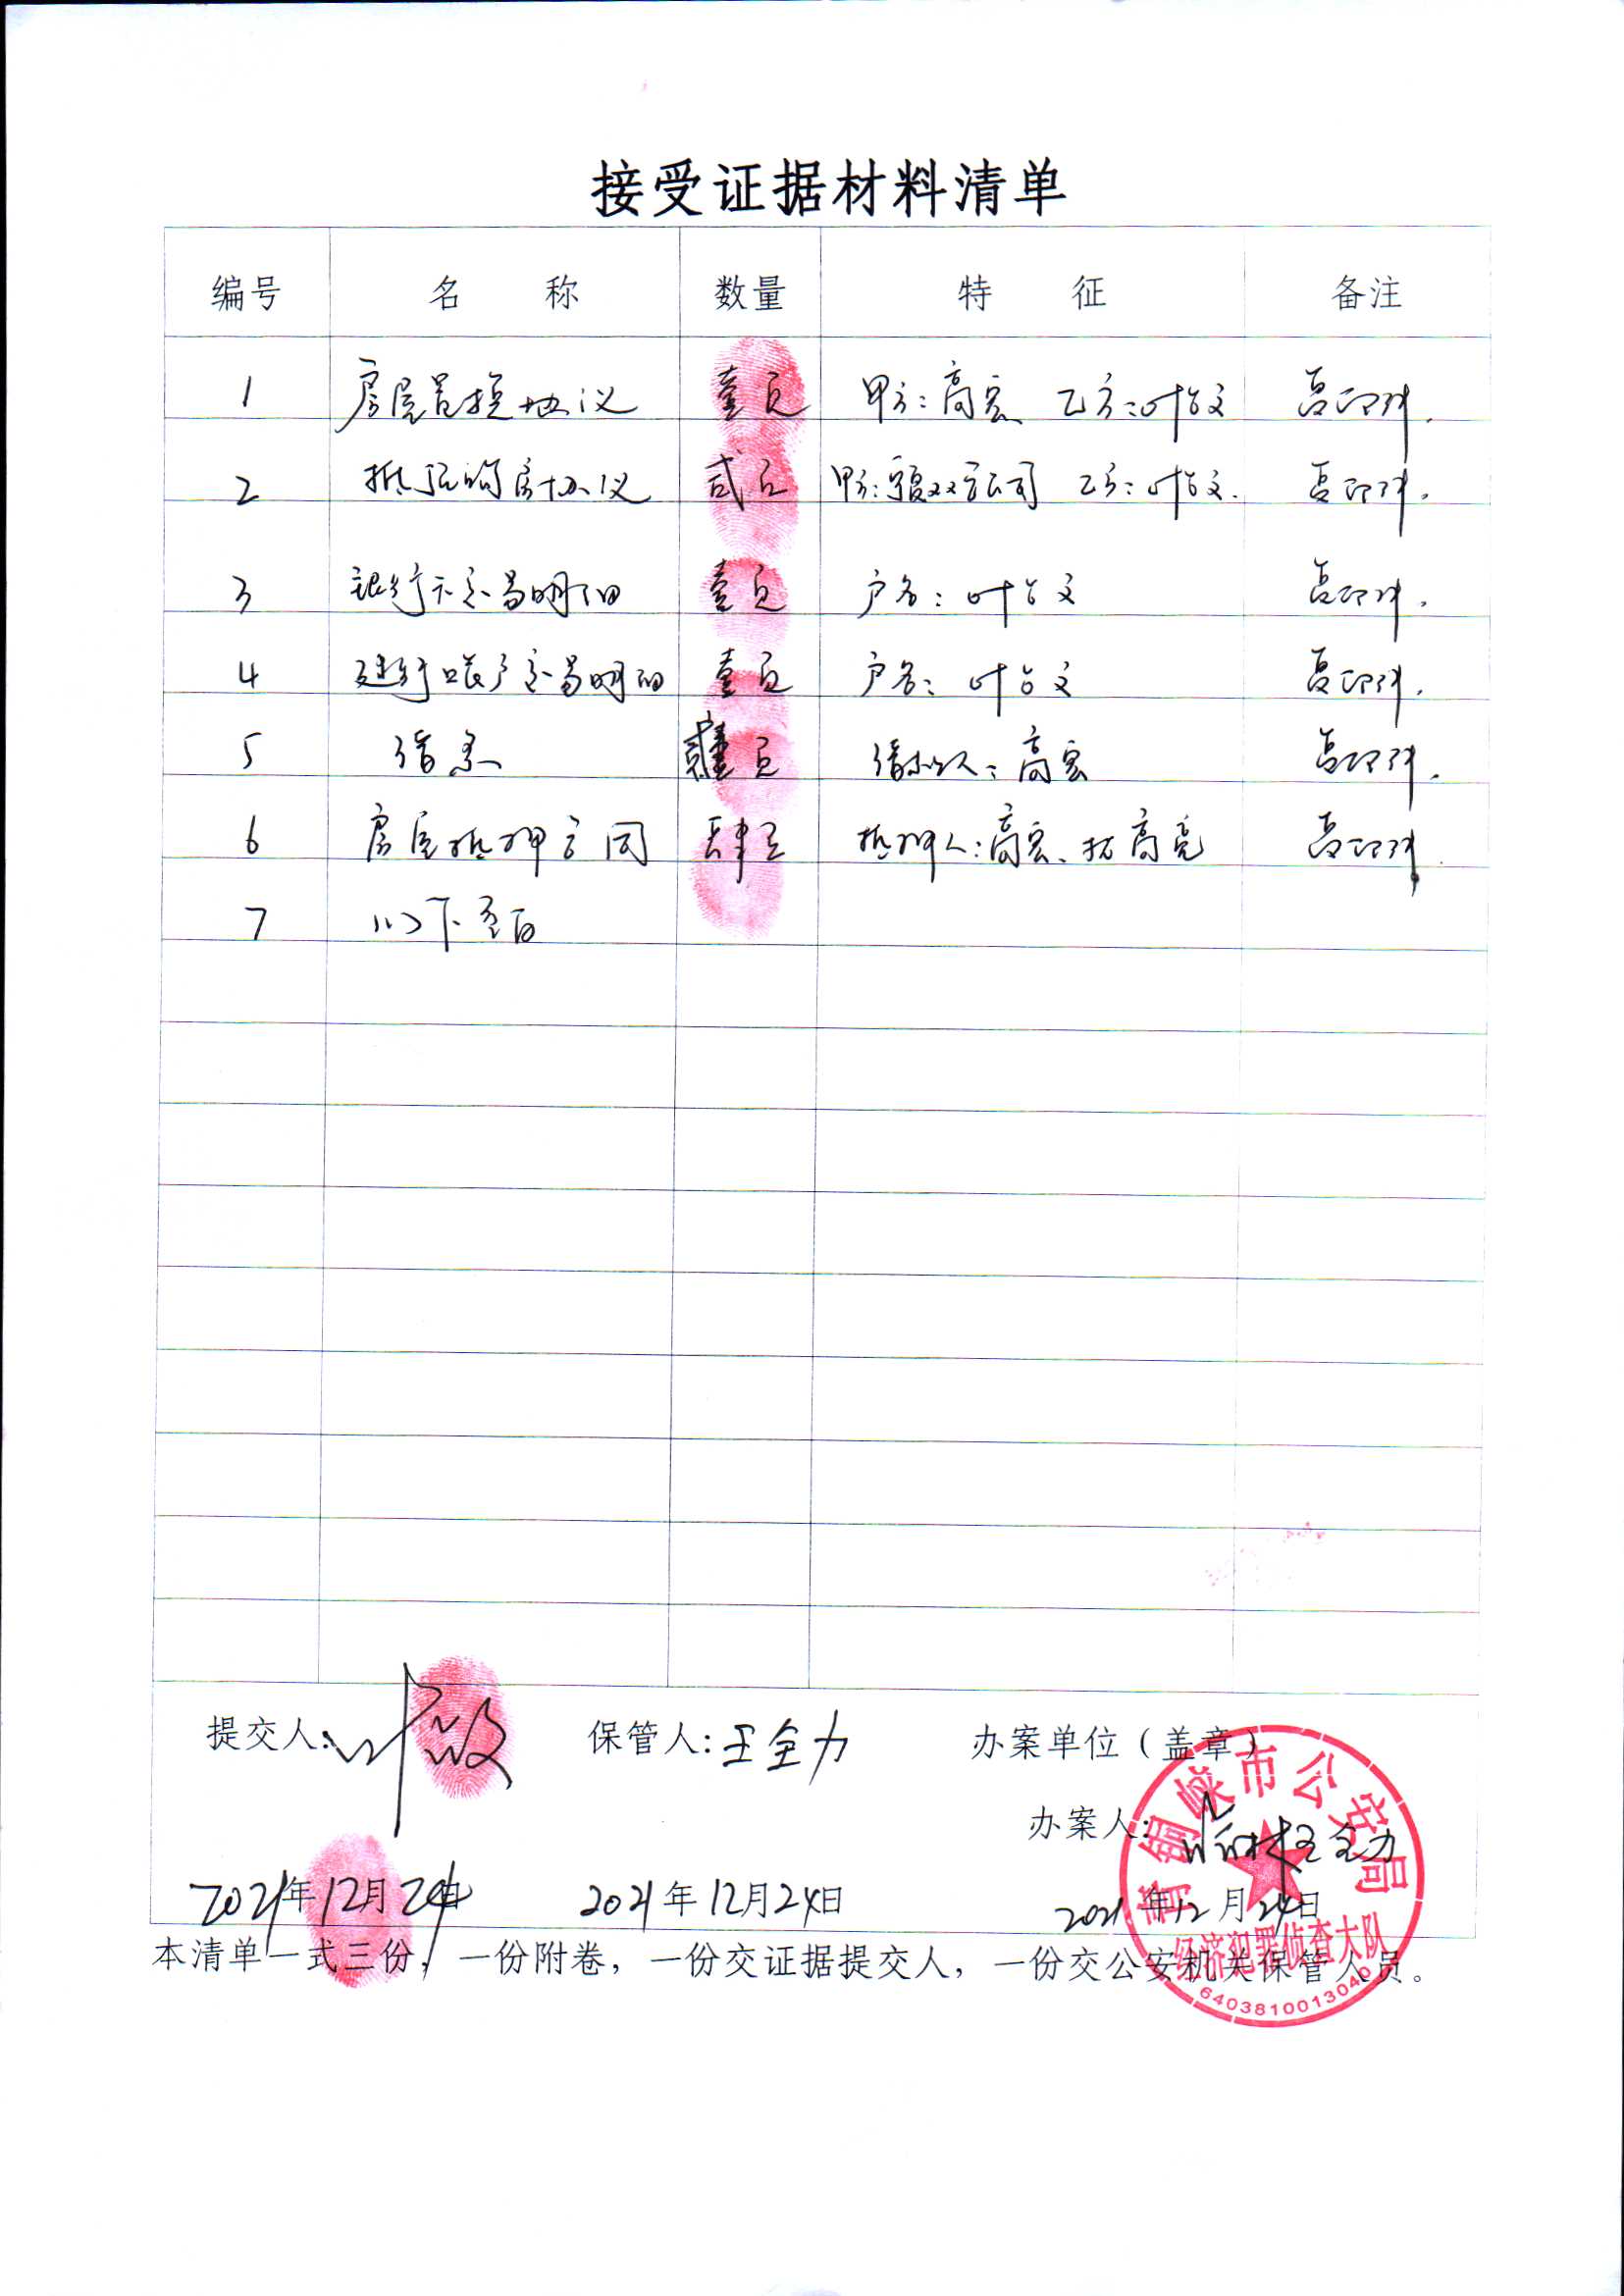 接受证据材料清单
编号 名称 数量 特征 备注
1 房屋置换协议 壹页 甲方：高宏 乙方：叶台文 复印件.
2 抵顶购房协议 贰页 甲方：宁夏双公司 乙方：叶台文. 复印件.
3 银行卡交易明细 壹页 户名：叶台文 复印件.
4 建行账户交易明细 壹页 户名：叶台文 复印件.
5 借条 页 借款人：高宏 复印件.
6 房屋抵押合同 肆页 抵押人：高宏、高亮 复印件.
7 以下空白
提交人: 保管人:王全力 办案单位（盖章）
办案人: 王全力
2021年12月24日 2021年12月24日 2021年12月24日
本清单一式三份，一份附卷，一份交证据提交人，一份交公安机关保管人员。
青铜峡市公安局
经济犯罪侦查大队
6403810013040